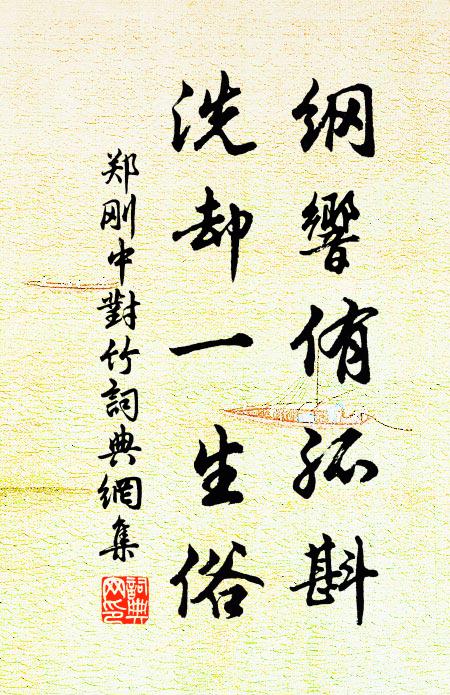 纲響侑孤斟
洗却一生俗
郑刚中對竹詞典網集
詞典
网印